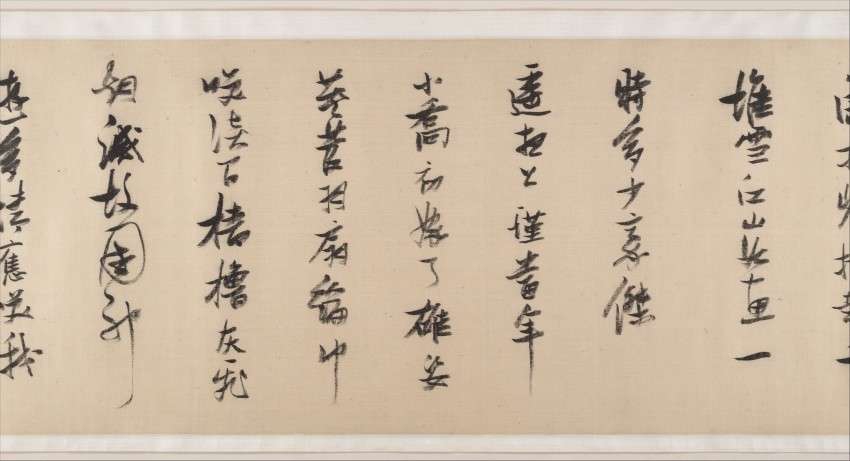 堆雪江山如畫一
時多少豪傑
遙想公瑾當年
小喬初嫁了雄姿
英發羽扇綸巾
咲談間檣櫓灰飛
烟滅故國神
遊多情應笑我